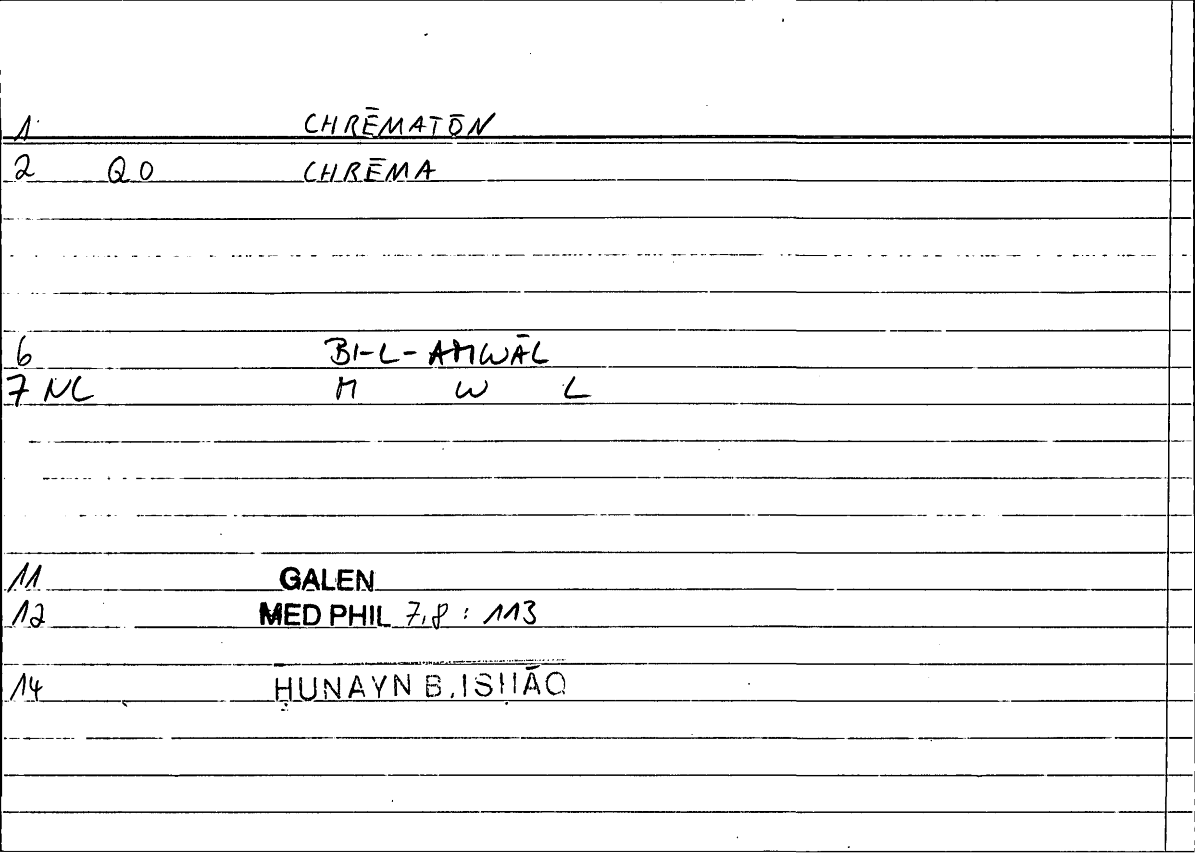 1 CHRĒMATŌN
2 QO CHRĒMA
6 BI-L-AMWĀL
7 NL M W L
11 GALEN
12 MED PHIL 7,8 : 113
14 ḤUNAYN B. ISḤĀQ